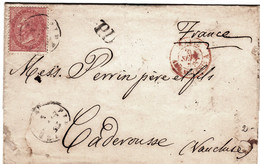 P.D.
France
Mess. Perrin père et fils
Caderousse
(Vaucluse)